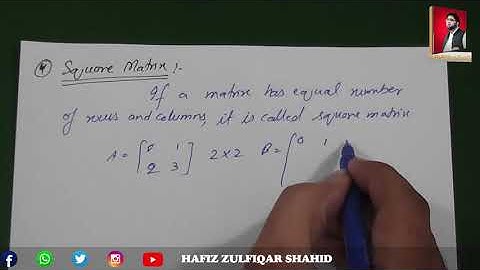 ④ Square Matrix :-
If a matrix has equal number
of rows and columns, it is called square matrix
A = [0 1 2 3] 2×2 B = [0 1
HAFIZ ZULFIQAR SHAHID